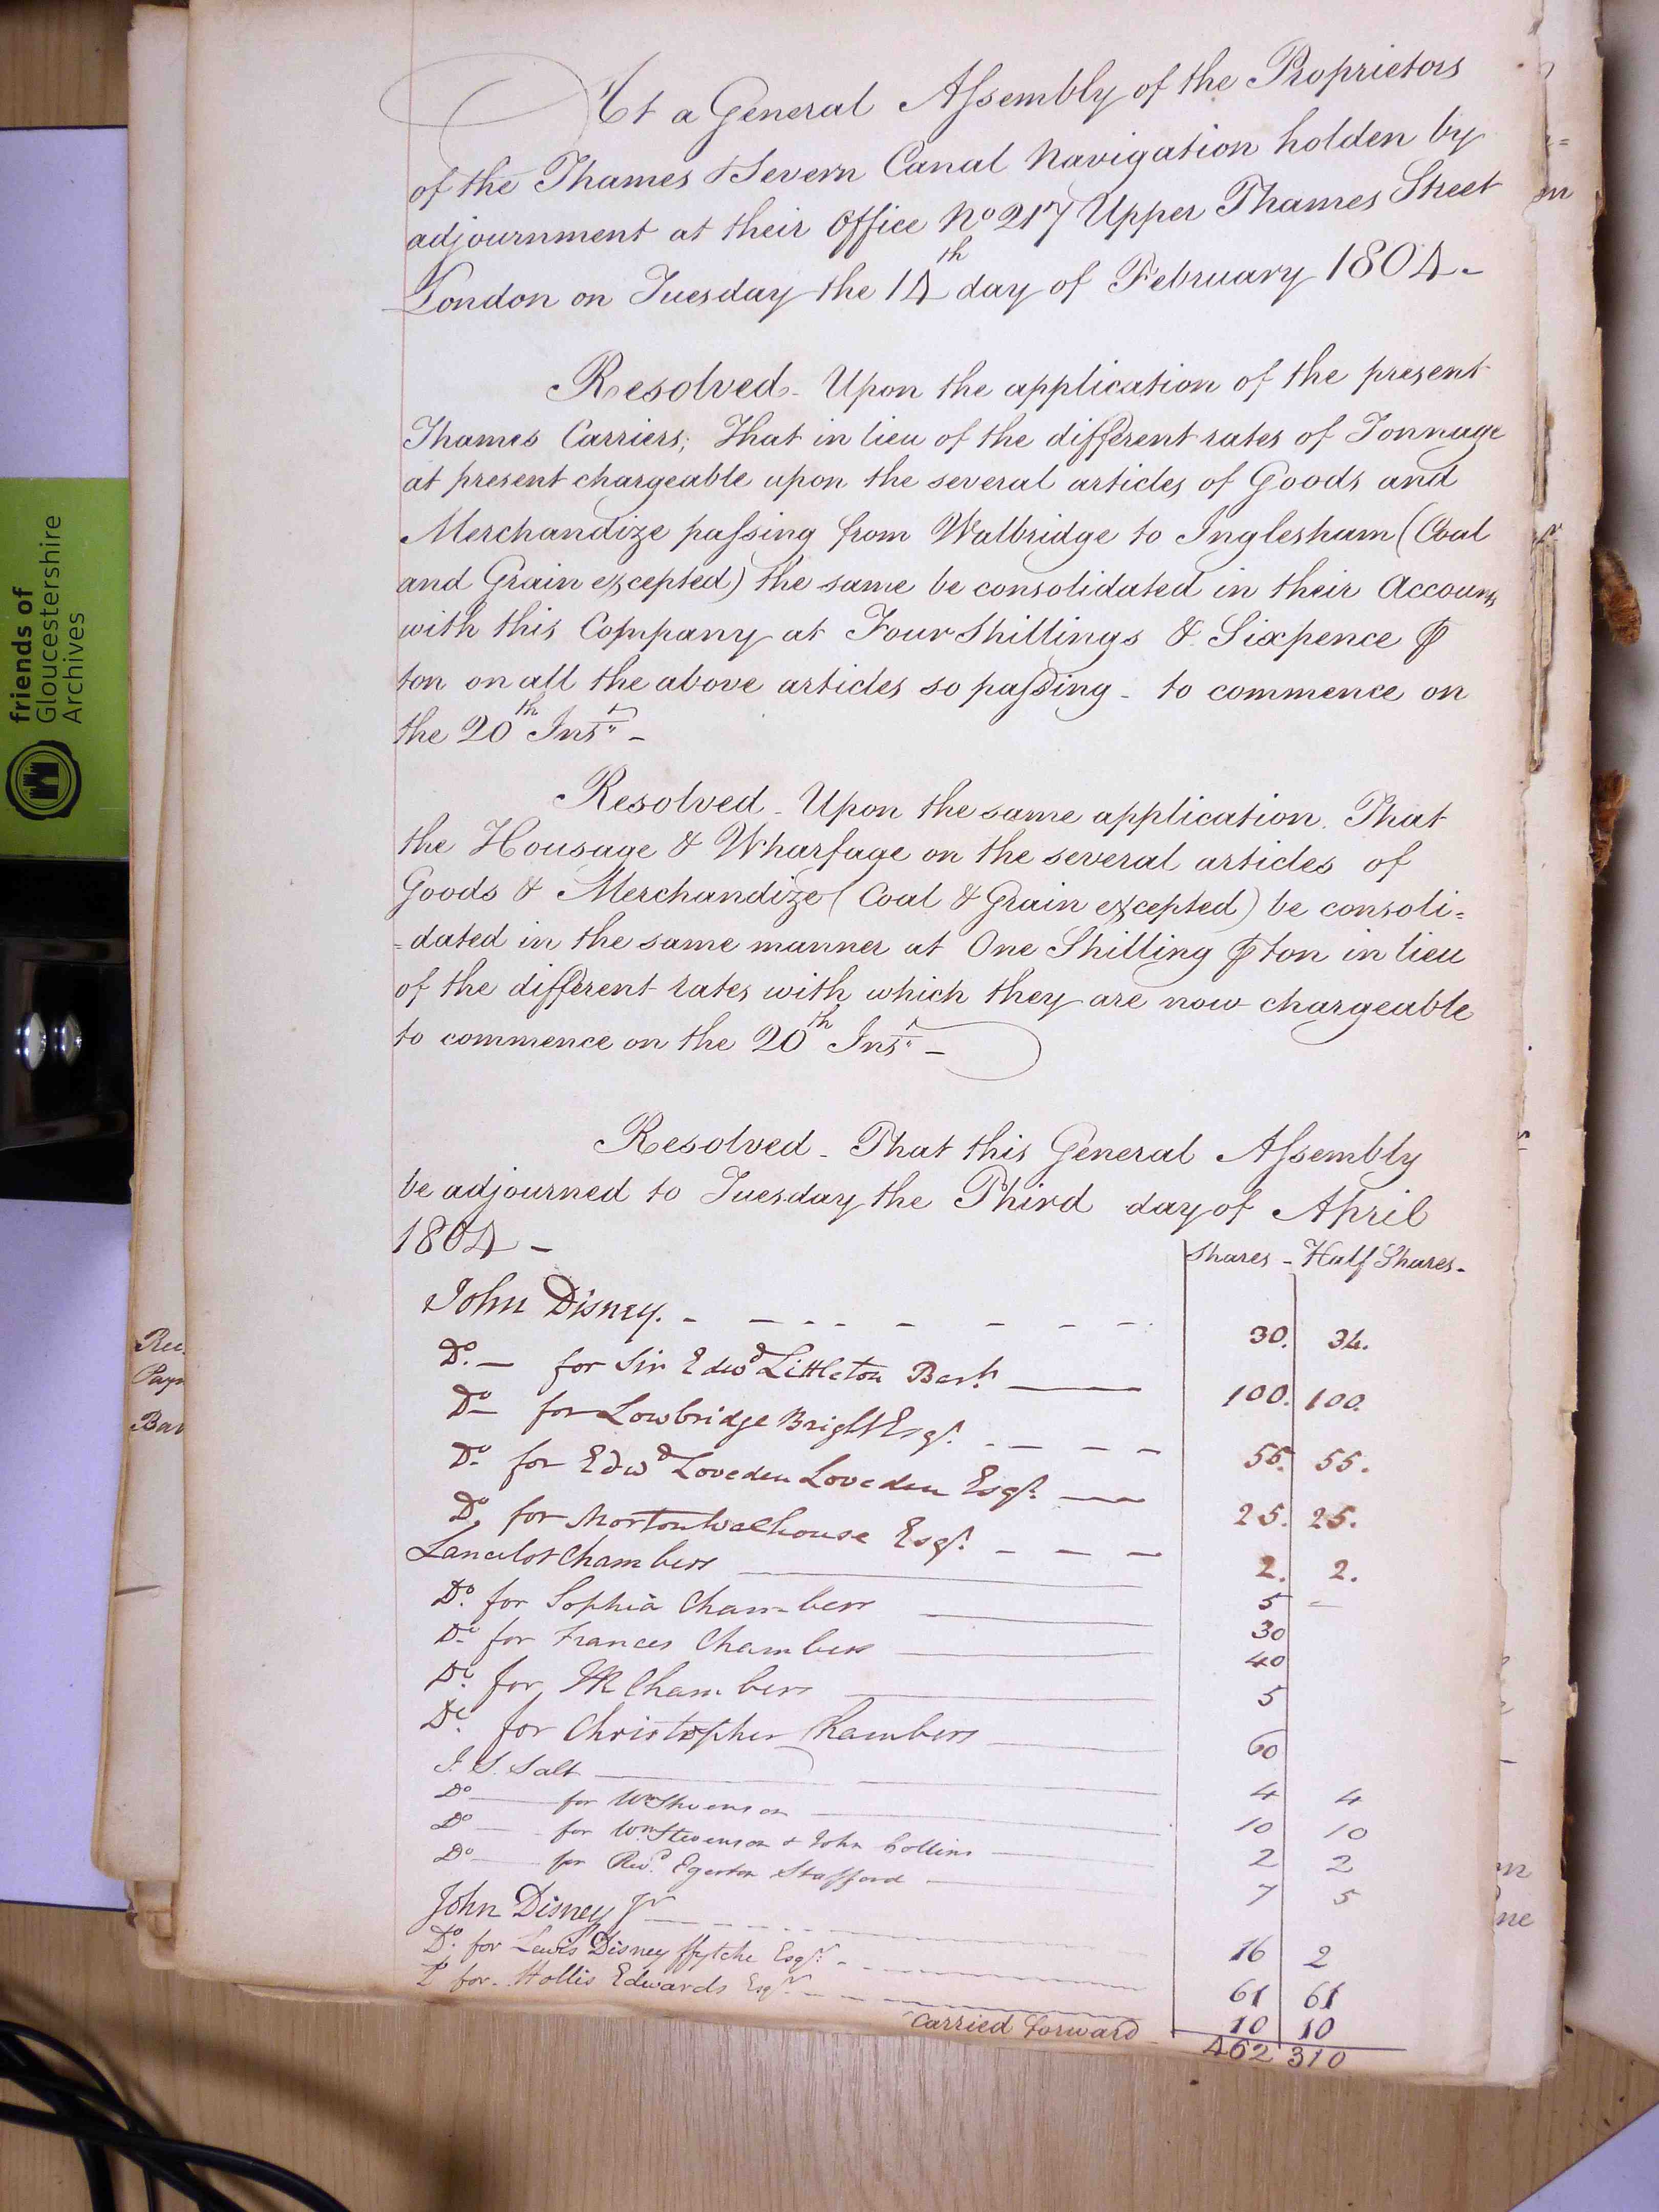 At a General Assembly of the Proprietors
of the Thames & Severn Canal Navigation holden by
adjournment at their Office No 217 Upper Thames Street
London on Tuesday the 14th day of February 1804 -
Resolved - Upon the application of the present
Thames Carriers; That in lieu of the different rates of Tonnage
at present chargeable upon the several articles of Goods and
Merchandize passing from Walbridge to Inglesham (Coal
and Grain excepted) the same be consolidated in their Accounts
with this Company at Four Shillings & Sixpence ⅌
ton on all the above articles so passing - to commence on
the 20th Inst. -
Resolved - Upon the same application. That
the Housage & Wharfage on the several articles of
Goods & Merchandize (Coal & Grain excepted) be consoli=
=dated in the same manner at One Shilling ⅌ ton in lieu
of the different rates with which they are now chargeable
to commence on the 20th Inst. -
Resolved - That this General Assembly
be adjourned to Tuesday the Third day of April
1804 -
Shares - Half Shares -
John Disney. 30. 34.
Do. - for Sir Edwd Littleton Bart. 100. 100.
Do - for Lowbridge Bright Esqr. 55. 55.
Do. for Edwd Loveden Loveden Esqr. 25. 25.
Do. for Morton Walhouse Esqr. 2. 2.
Lancelot Chambers 5 -
Do. for Sophia Chambers 30
Do. for Frances Chambers 40
Do. for Chambers 5
Do. for Christopher Chambers 60
J. S. Salt 4 4
Do for Wm Stevenson 10 10
Do for Wm Stevenson & John Collins 2 2
Do for Revd. Egerton Stafford 7 5
John Disney Jr 16 2
Do. for Lewis Disney ffytche Esqr. 61 61
Do for Hollis Edwards Esqr. 10 10
Carried forward 462 310
friends of
Gloucestershire
Archives
Rec
Paym
Bar